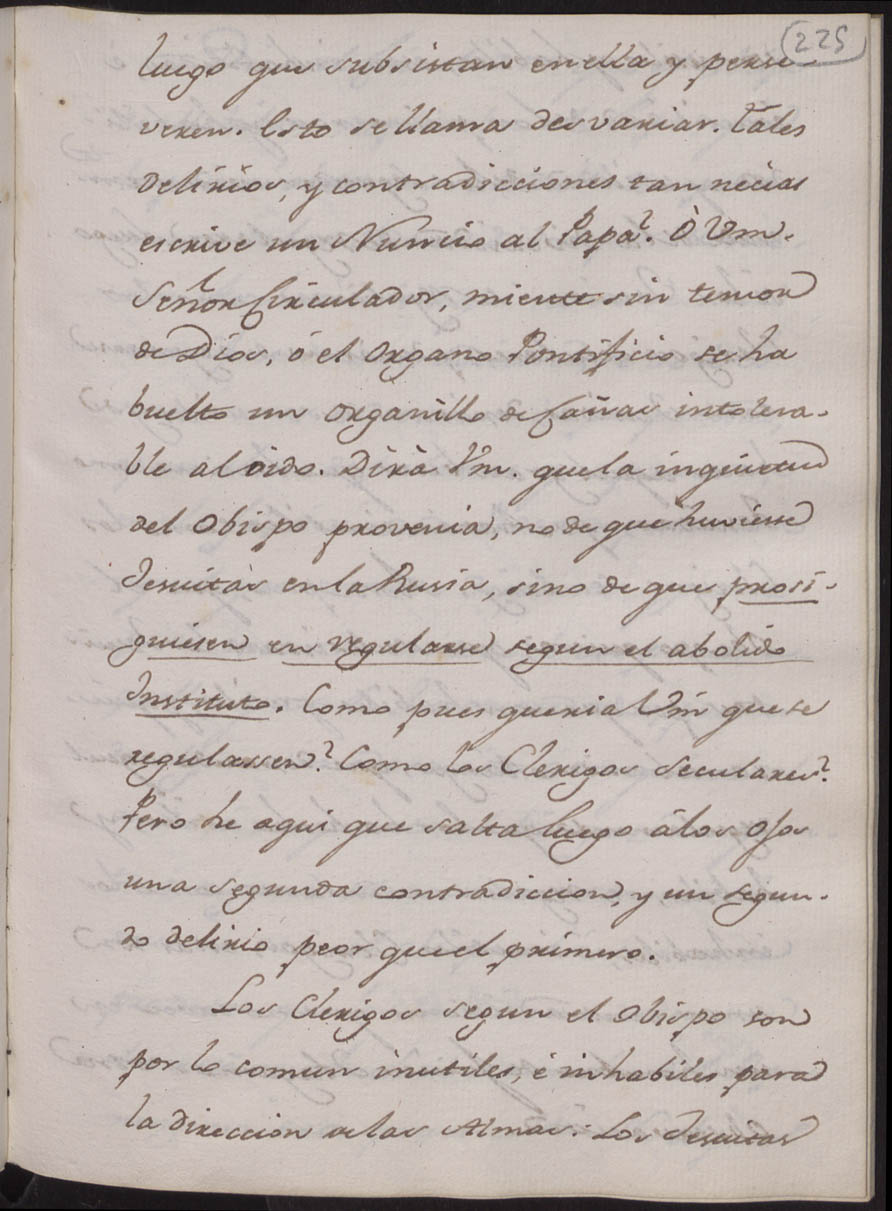 225
luego que subsistan en ella y perse-
veren. Esto se llama desvariar. Tales
delirios, y contradicciones tan necias
escrive un Nuncio al Papa?. Ò Vm.
Señor Circulador, miente sin temor
de Dios, ó el Organo Pontificio se ha
buelto un organillo de Cañas intolera-
ble al oido. Dirà Vm. que la inquietud
del Obispo provenia, no de que huviese
Jesuitas en la Rusia, sino de que prosi-
guiesen en regularse segun el abolido
Instituto. Como pues queria Vm que se
regulassen? Como los Clerigos seculares?
Pero he aqui que salta luego à los ojos
una segunda contradiccion, y un segun-
do delirio peor que el primero.
Los Clerigos segun el Obispo son
por lo comun inutiles, è inhabiles para
la direccion de las Almas. Los Jesuitas